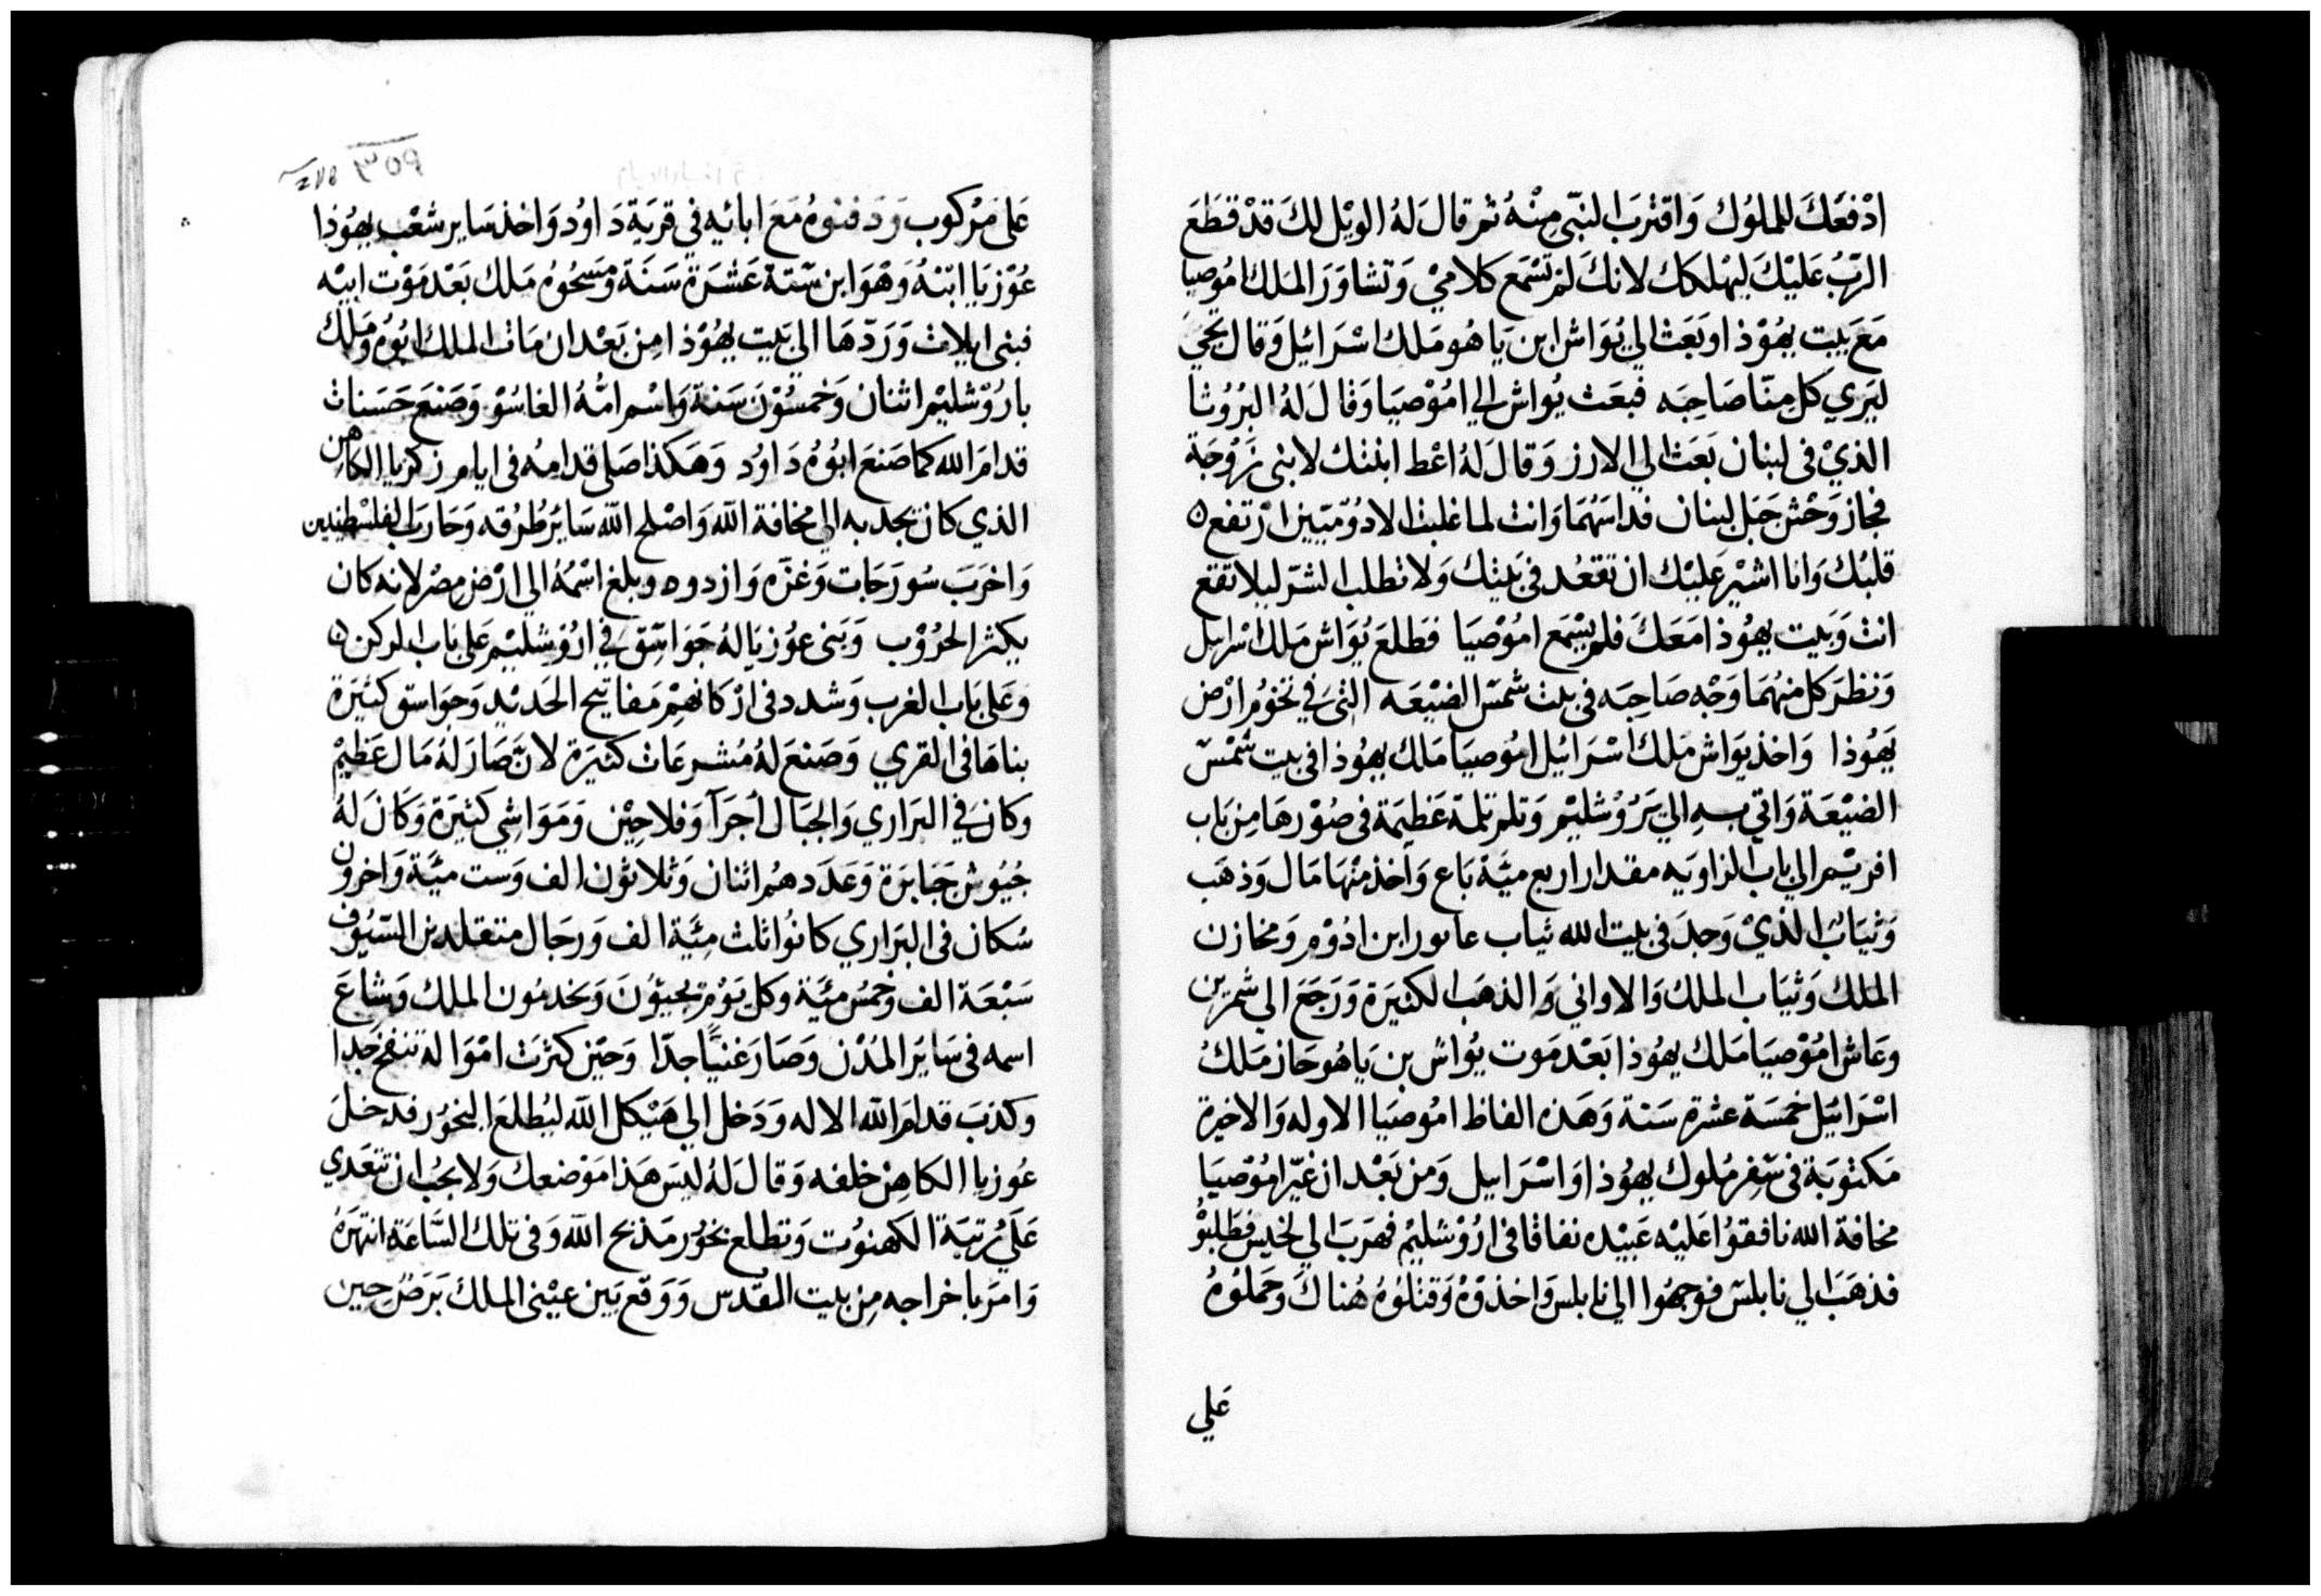 ادْفعَكَ للملوُك وَاقتْربَ النبّي مِنْهُ ثم قالَ لهُ الويْل لكَ قدْ قطَعَ
الرّبُ عَليْكَ ليهْلكك لانكَ لمْ تسْمَع كلامي وَتشاوَرَ الملك اموُصيا
مَعَ بيت يهُوْذا وبَعَث الي يُوَاش ابن يَاهو مَلك اسْرَائيل وَقال يجيَ
ليَري كل مِنّا صَاحِبَه فبعَث يُواش الي امُوْصيَا وَقالَ لهُ البرُوُثا
الذيْ في لبنان بَعَث الي الارز وَقالَ لهُ اعْط ابنتك لابني زَوْجَة
فجاز وَحْش جَبَل لبنان فداسَهُمَا وَانت لما غلبت الادوُميّين ارْتفع
قلبُك وَانا اشيْر عَليْك ان تقعُد في بَيتك وَلا تطلب الشرّ ليلا تقع
انت وَبَيت يهُوذا مَعَكَ فلم يسْمَع امُوْصيَا فطَلعَ يُوَاش مَلك اسْرايل
وَنظرَ كل منهُمَا وَجْه صَاحِبَه في بيت شمسّ الضيْعَه التي في تخوُم ارْض
يَهُوذا وَاخذ يوَاش مَلك اسْرَائيل اموُصيَا مَلك يهُوذا في بيت شمْسّ
الضيْعَة وَاتي بهِ الي يَرُوُشليْم وَثلم ثلمة عَظيمَة في صُوْرهَا مِن بَاب
افريْم الي باب الزاويَه مقدار اربع ميَّة بَاع وَاخذ منْهَا مَال وَذهَب
وَثيَاب الذيْ وَجدَ في بيت الله ثياب عابور ابن ادُوْم وَمخازن
الملك وَثيَاب الملك وَالاواني وَالذهَب الكثيَرة وَرَجَعَ الي شمرين
وعَاش امُوْصيَا مَلك يهُوذا بَعْد مَوت يُواش بن يَاهُوحَاز مَلكُ
اسْرَائيَل خمسَة عشرة سَنة وَهَذه الفاظ امُوصيَا الاوله وَالاخيرة
مَكتوُبَة في سّفِر مُلوك يهوُذا وَاسْرَايل وَمن بَعْد ان غيّر امُوْصيَا
مخافة الله نافقوُا عَليْه عَبيْده نفاقا في ارُوْشليْم فهَربَ الي لخيس فطَلبُوْ
فذهَبَ الي نابلسّ فوجهُوا الي نابلس وَاخذوْهُ وَقتلوُهُ هُناكَ وَحَملوُهُ
عَلي
عَلى مَرْكوب وَدَفنوهُ مَعَ ابائيه في قريَة دَاوُد وَاخذ سَاير شعْب يهوُذا
عوُزيَا ابْنهُ وَهْوَ ابن ستّة عَشرَة سَنَة وَمَسَحُوهُ مَلك بَعْد مَوْت ابيْه
فبنى ايلات وَرَدّهَا الي بَيت يهُوْذا مِن بَعْد ان مَات الملك ابُوُه وَمَلكَ
باروُشليْم اثنان وَخمسُوْنَ سَنة وَاسْم امُّهُ الغاسُوْ وَصَنعَ حَسَنات
قدامَ الله كما صَنعَ ابُوْهُ دَاوُد وَهَكذا صَلى قدامهُ في ايام زكريا الكاهن
الذي كان يجذبه الي مخافة الله وَاصْلح الله سَائر طُرُقه وَحَارَب الفلسْطينيين
وَاخرَبَ سُور جَات وَغزّه وَازدوه وبلغ اسْمُهُ الي ارْض مصْر لانه كان
يكثر الحرُوْب وَبَنى عوُزيَا لهُ جَوَاسّق في ارُوْشليْم عَلى بَاب الركن
وَعَلى بَاب الغرب وَشدد في ارْكانهِمْ مَفاتيح الحَديْد وَجوَاسّق كثيَرة
بناهَا في القري وَصَنعَ لهُ مُشرعَات كثيَرة لانّ صَارَ لهُ مَال عَظيمْ
وكانَ في البَراري وَالجبَال اجَرَآ وَفلاحِيْن وَمَوَاشي كثيَرة وَكَانَ لهُ
جُيُوش جَبَابَرة وَعَدَدهُم اثنان وَثلاثون الف وَست ميَّة وَاخرون
سُكان في البَراري كانوُا ثلث مِيَّة الف وَرجَال متقلدين السّيُوف
سَبْعَة الف وَخمسُ ميَّة وكل يَوْم يجيؤُنَ وَيخدمُون الملك وَشاعَ
اسمه في سَائرَ المُدْن وَصَارَ غنيًّا جدّا وَحيْن كثرَت امْوَاله تنفخ جَدا
وكذبَ قدامَ الله الاله وَدَخل الي هَيْكل الله ليُطلعَ البخوُر فدخلَ
عُوزيا الكاهِن خلفه وَقالَ لهُ ليسَ هَذا مَوْضعك وَلا يجُب ان تتعَدي
عَلَي رُتبَة الكهنوُت وَتطلع بخوُر مَذبح الله وَفي تلك السَّاعَة انتهَرَهُ
وَامَرَ باخراجه مِن بيت المقدس وَوَقعَ بَين عيْنى الملك بَرَصْ حِين